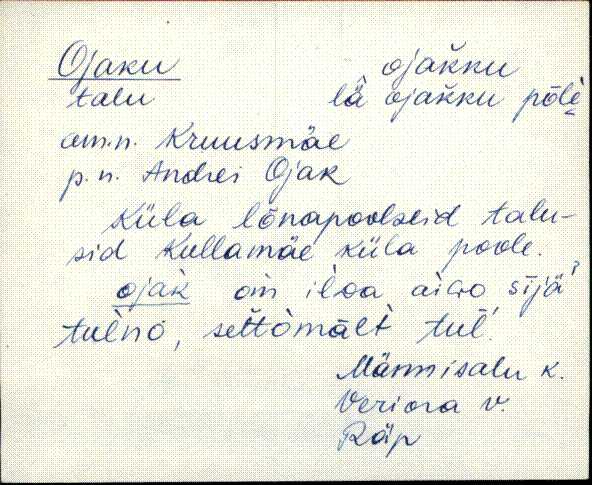 Ojaku ojakku
talu lä ojakku põlè
am.n. Kruusmäe
p.n. Andrei Ojak
Küla lõnapoolseid talu-
sid Kullamäe küla poole.
ojak om iloa aiwo sījä?
tulno, settòmält tul.
Männisalu k.
Veriora v.
Räp